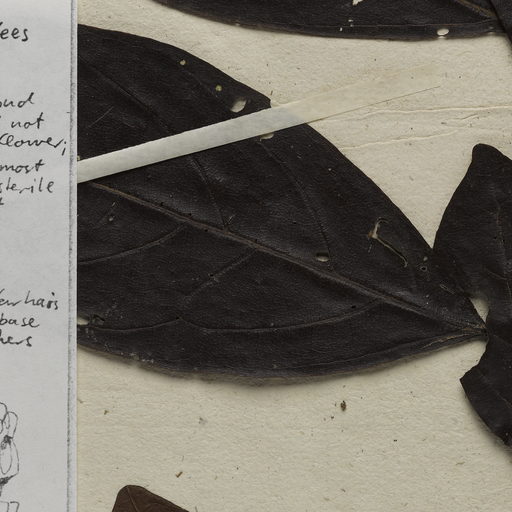 ees
and
not
flower;
most
sterile
few hairs
base